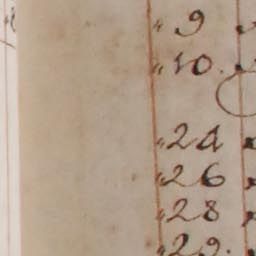 " 9
" 10.
" 24
" 26
" 28
" 29.